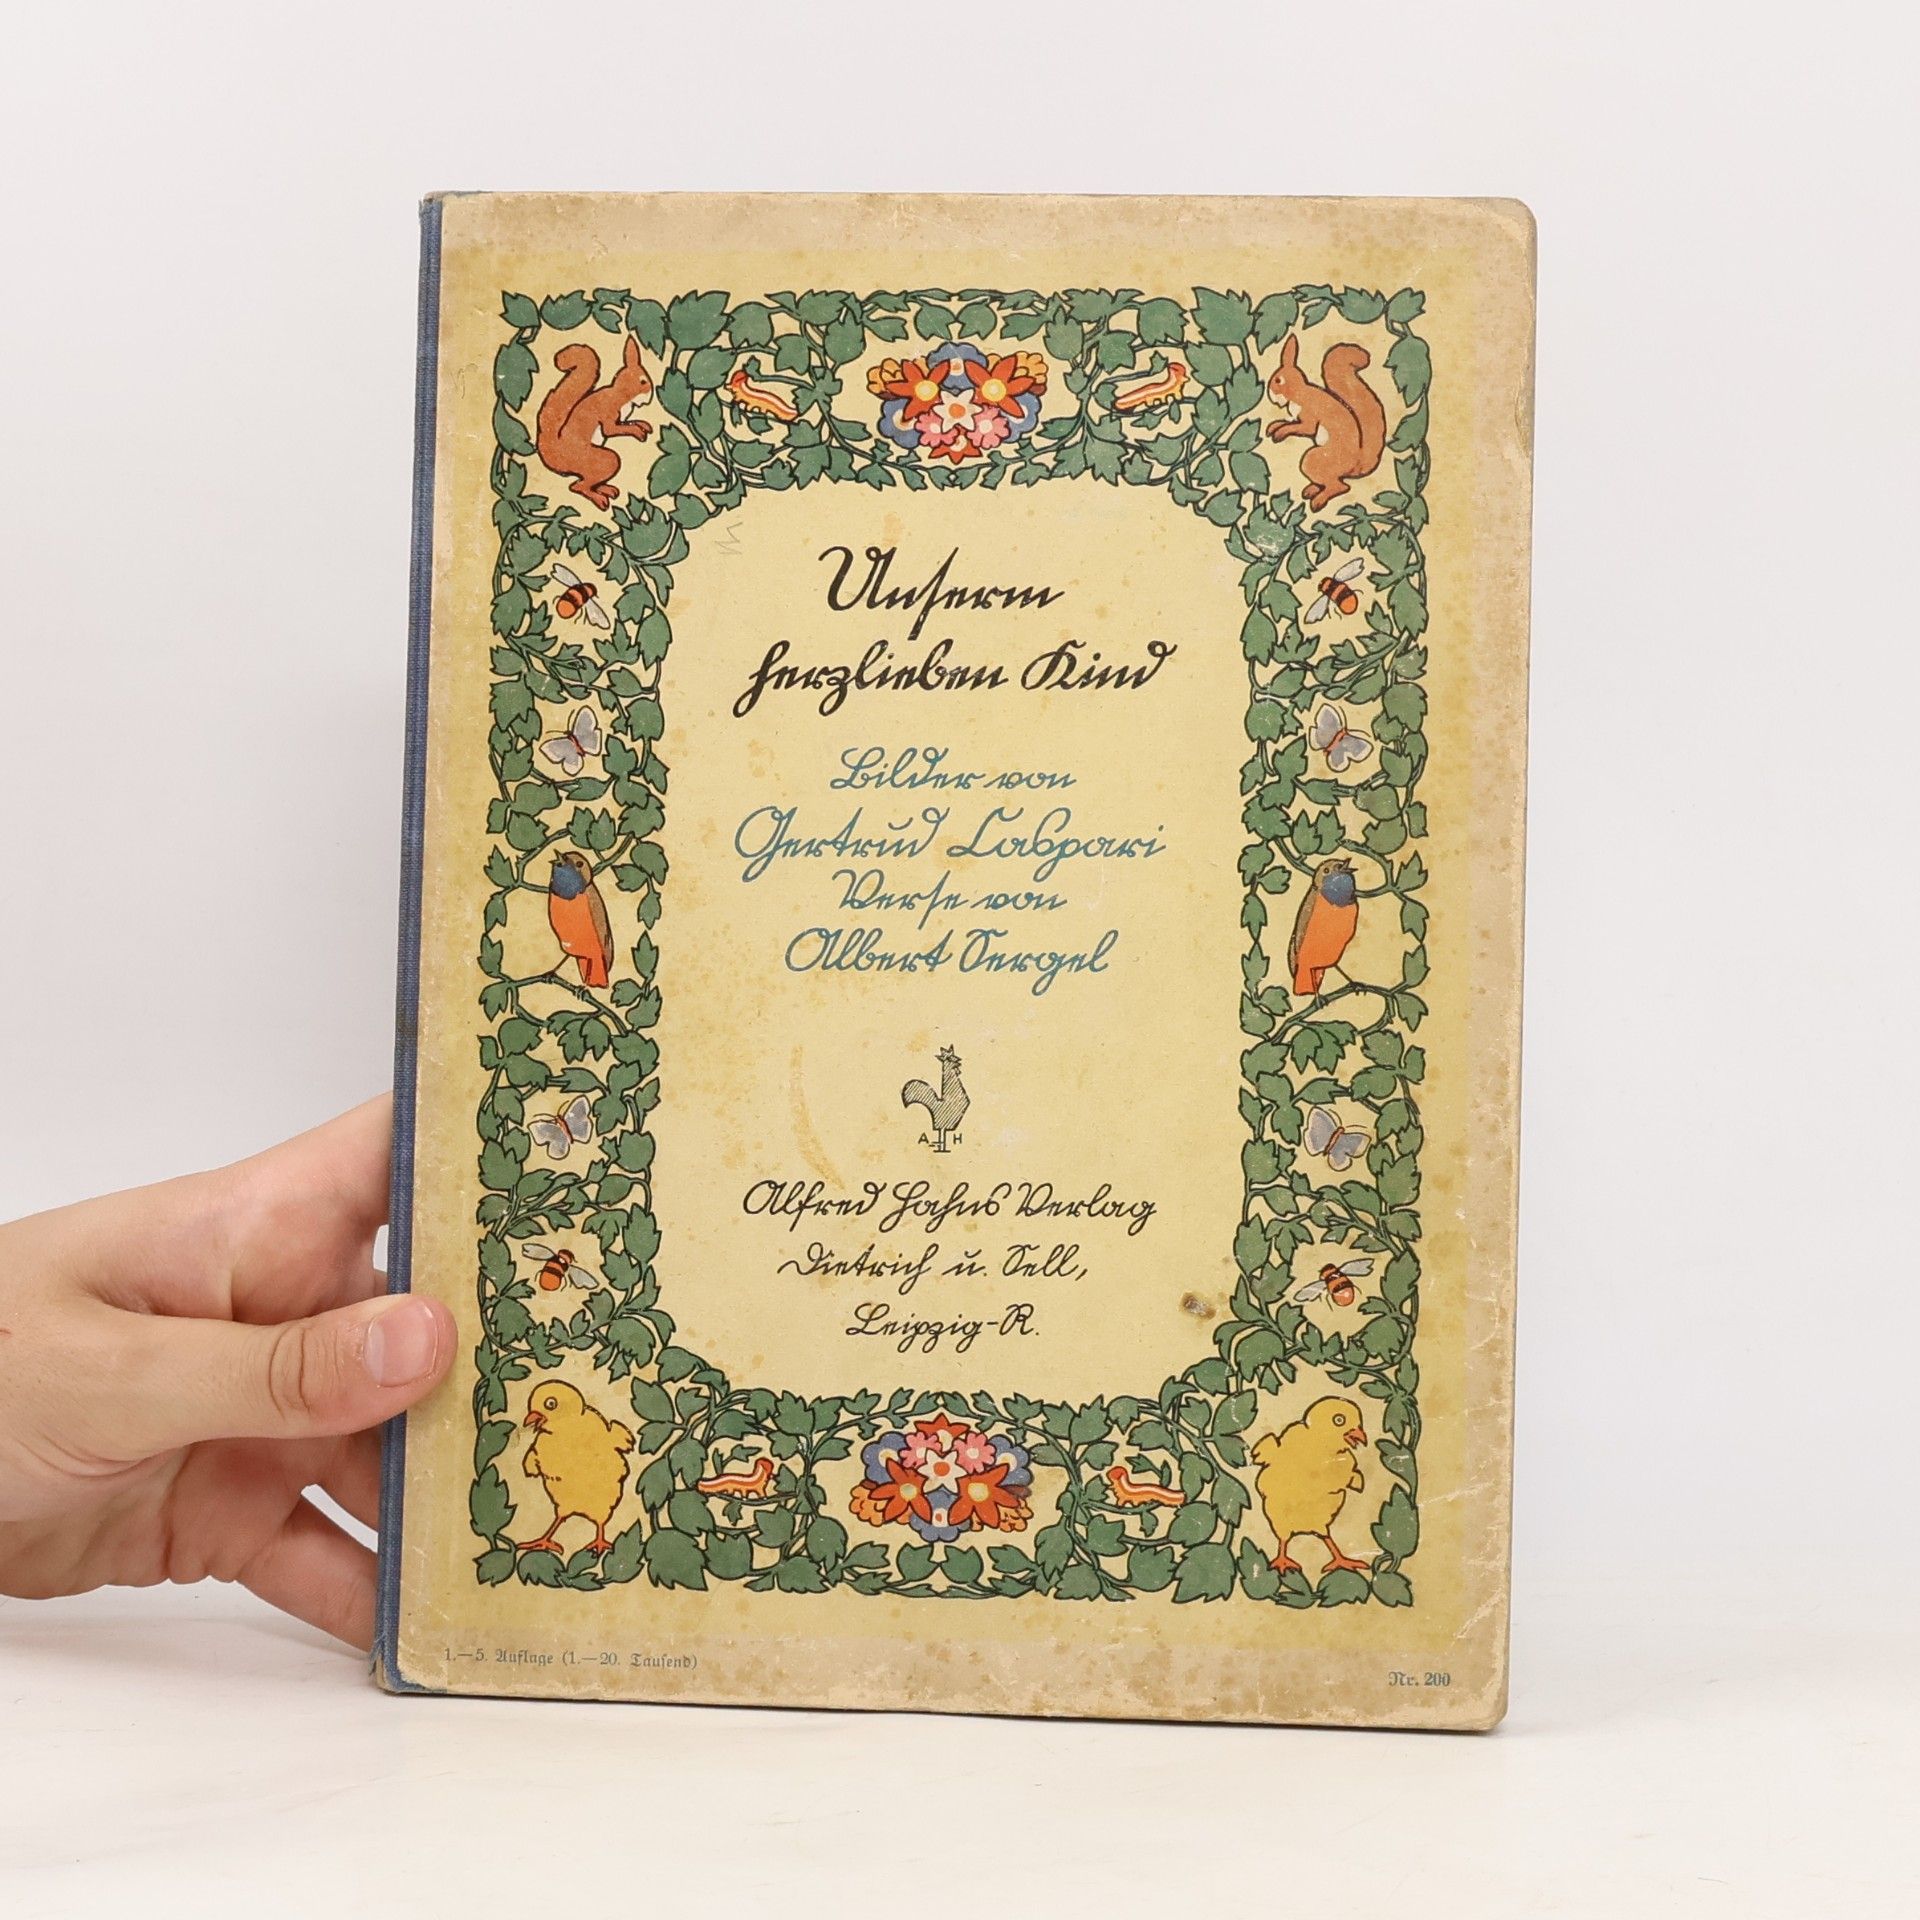 Unserm
herzlieben Kind
Bilder von
Gertrud Caspari
Verse von
Albert Sergel
A H
Alfred Hahns Verlag
Dietrich u. Sell,
Leipzig-R.
1.—5. Auflage (1.—20. Tausend)
Nr. 200